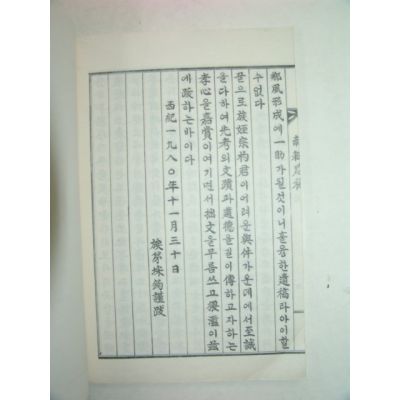 鄕風形成에一助가될것이니훌융한遺稿라아이할
수없다
끝으로族姪宗杓君이어려운與件가운데에서至誠
을다하여先考의文蹟과遺德을길이傳하고자하는
孝心을嘉賞이여기면서拙文을무릅쓰고猥濫이玆
에跋하는바이다
西紀一九八○年十一月三十日
族弟 鈞謹跋